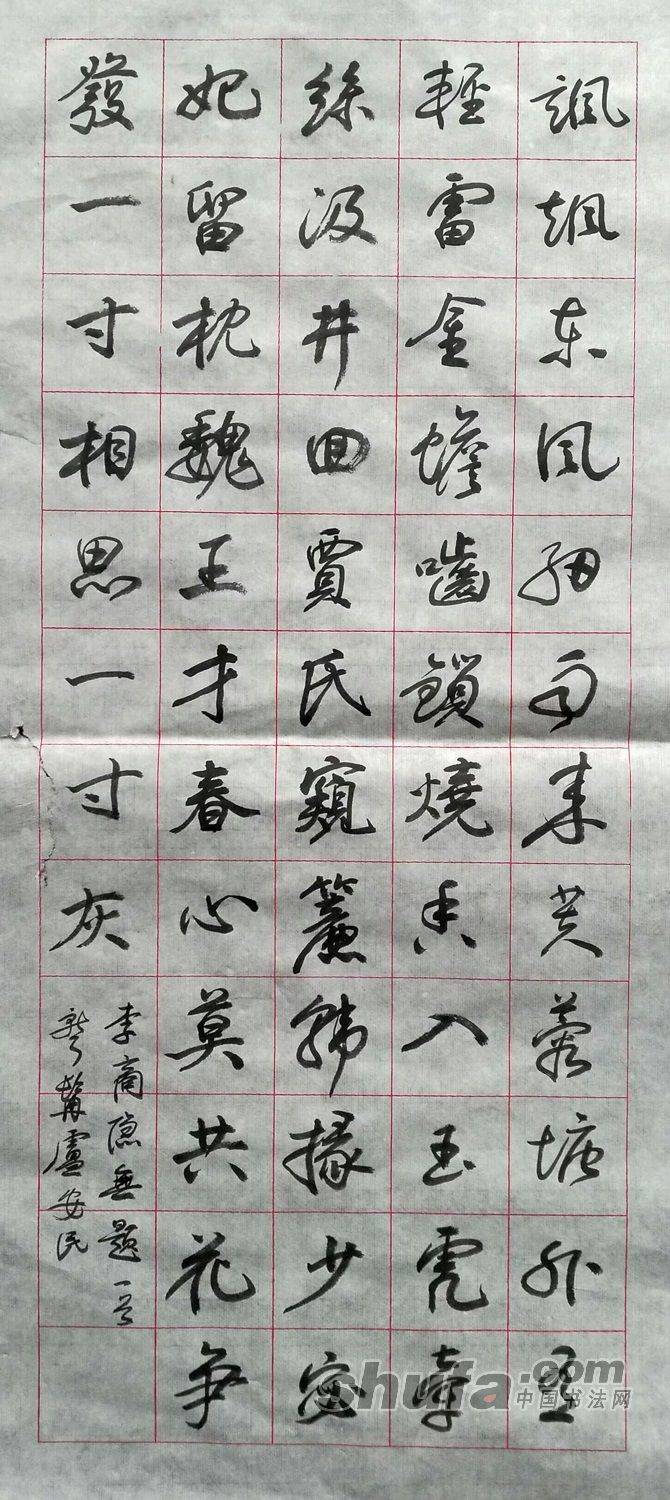 颯颯东風細雨来芙蓉塘外
輕雷金蟾嚙鎖燒香入玉虎牽
絲汲井回賈氏窺簾韓掾少宓
妃留枕魏王才春心莫共花争
發一寸相思一寸灰
李商隐無題一首
盧安民
shufa.com
中国书法网